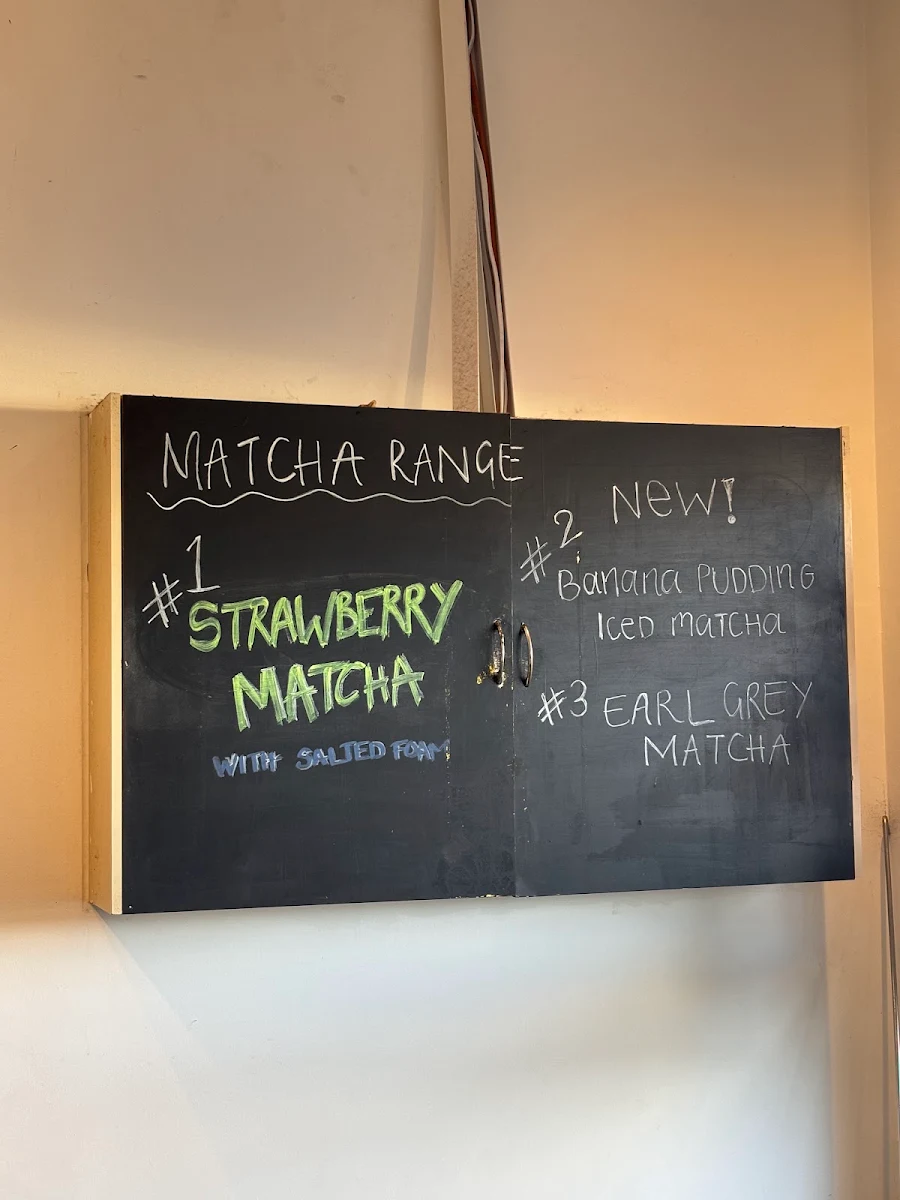 MATCHA RANGE
#1
STRAWBERRY
MATCHA
WITH SALTED FOAM
NEW!
#2
Banana PUDDING
Iced matcha
#3 EARL GREY
MATCHA